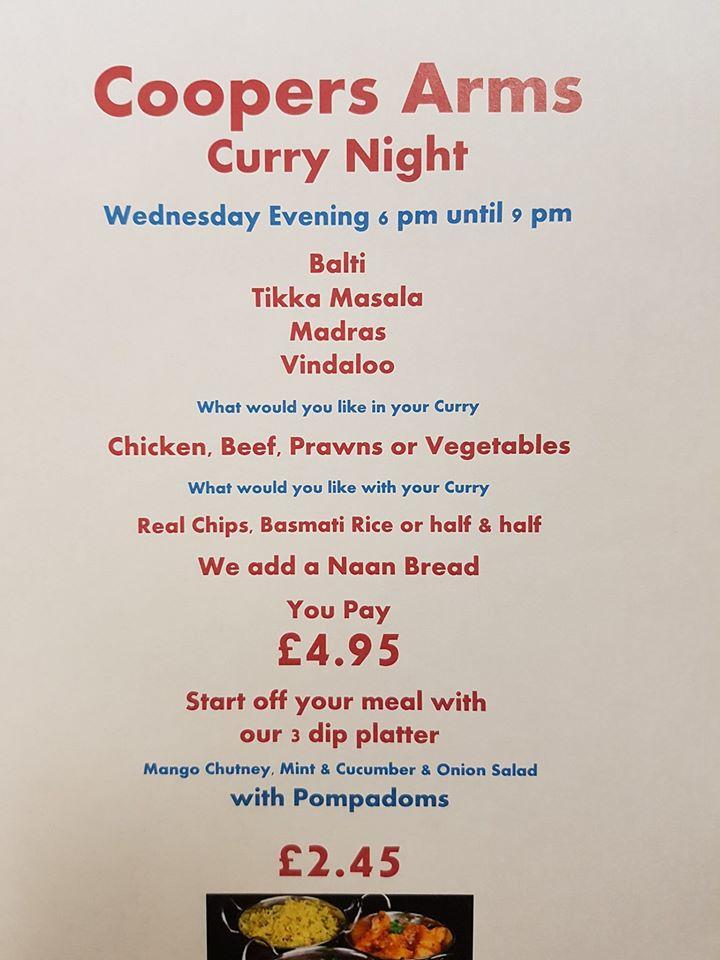 Coopers Arms
Curry Night
Wednesday Evening 6 pm until 9 pm
Balti
Tikka Masala
Madras
Vindaloo
What would you like in your Curry
Chicken, Beef, Prawns or Vegetables
What would you like with your Curry
Real Chips, Basmati Rice or half & half
We add a Naan Bread
You Pay
£4.95
Start off your meal with
our 3 dip platter
Mango Chutney, Mint & Cucumber & Onion Salad
with Pompadoms
£2.45